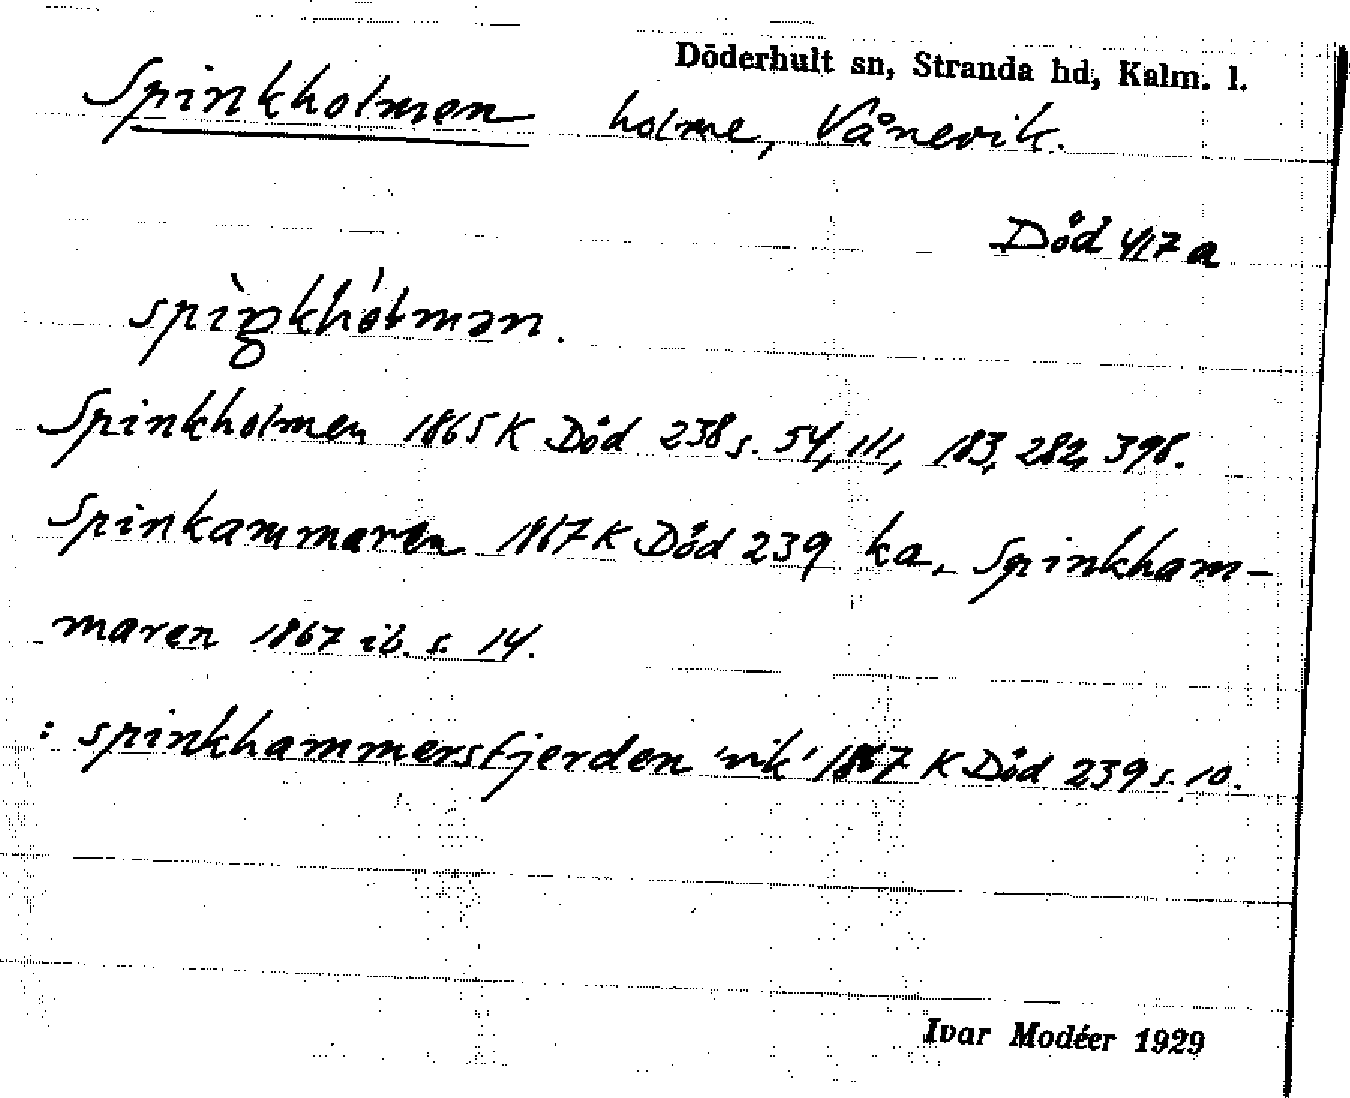 Döderhult sn, Stranda hd, Kalm. l.
Spinkholmen holme, Vånevik.
Död 417a
spìŋkhólmən.
Spinkholmen 1865 K Död 238 s. 54, 111, 183, 282, 398.
Spinkammaren 1867 K Död 239 ka, Spinkham-
maren 1867 ib. s. 14.
: spinkhammersfjerden 'vik' 1867 K Död 239 s. 10.
Ivar Modéer 1929